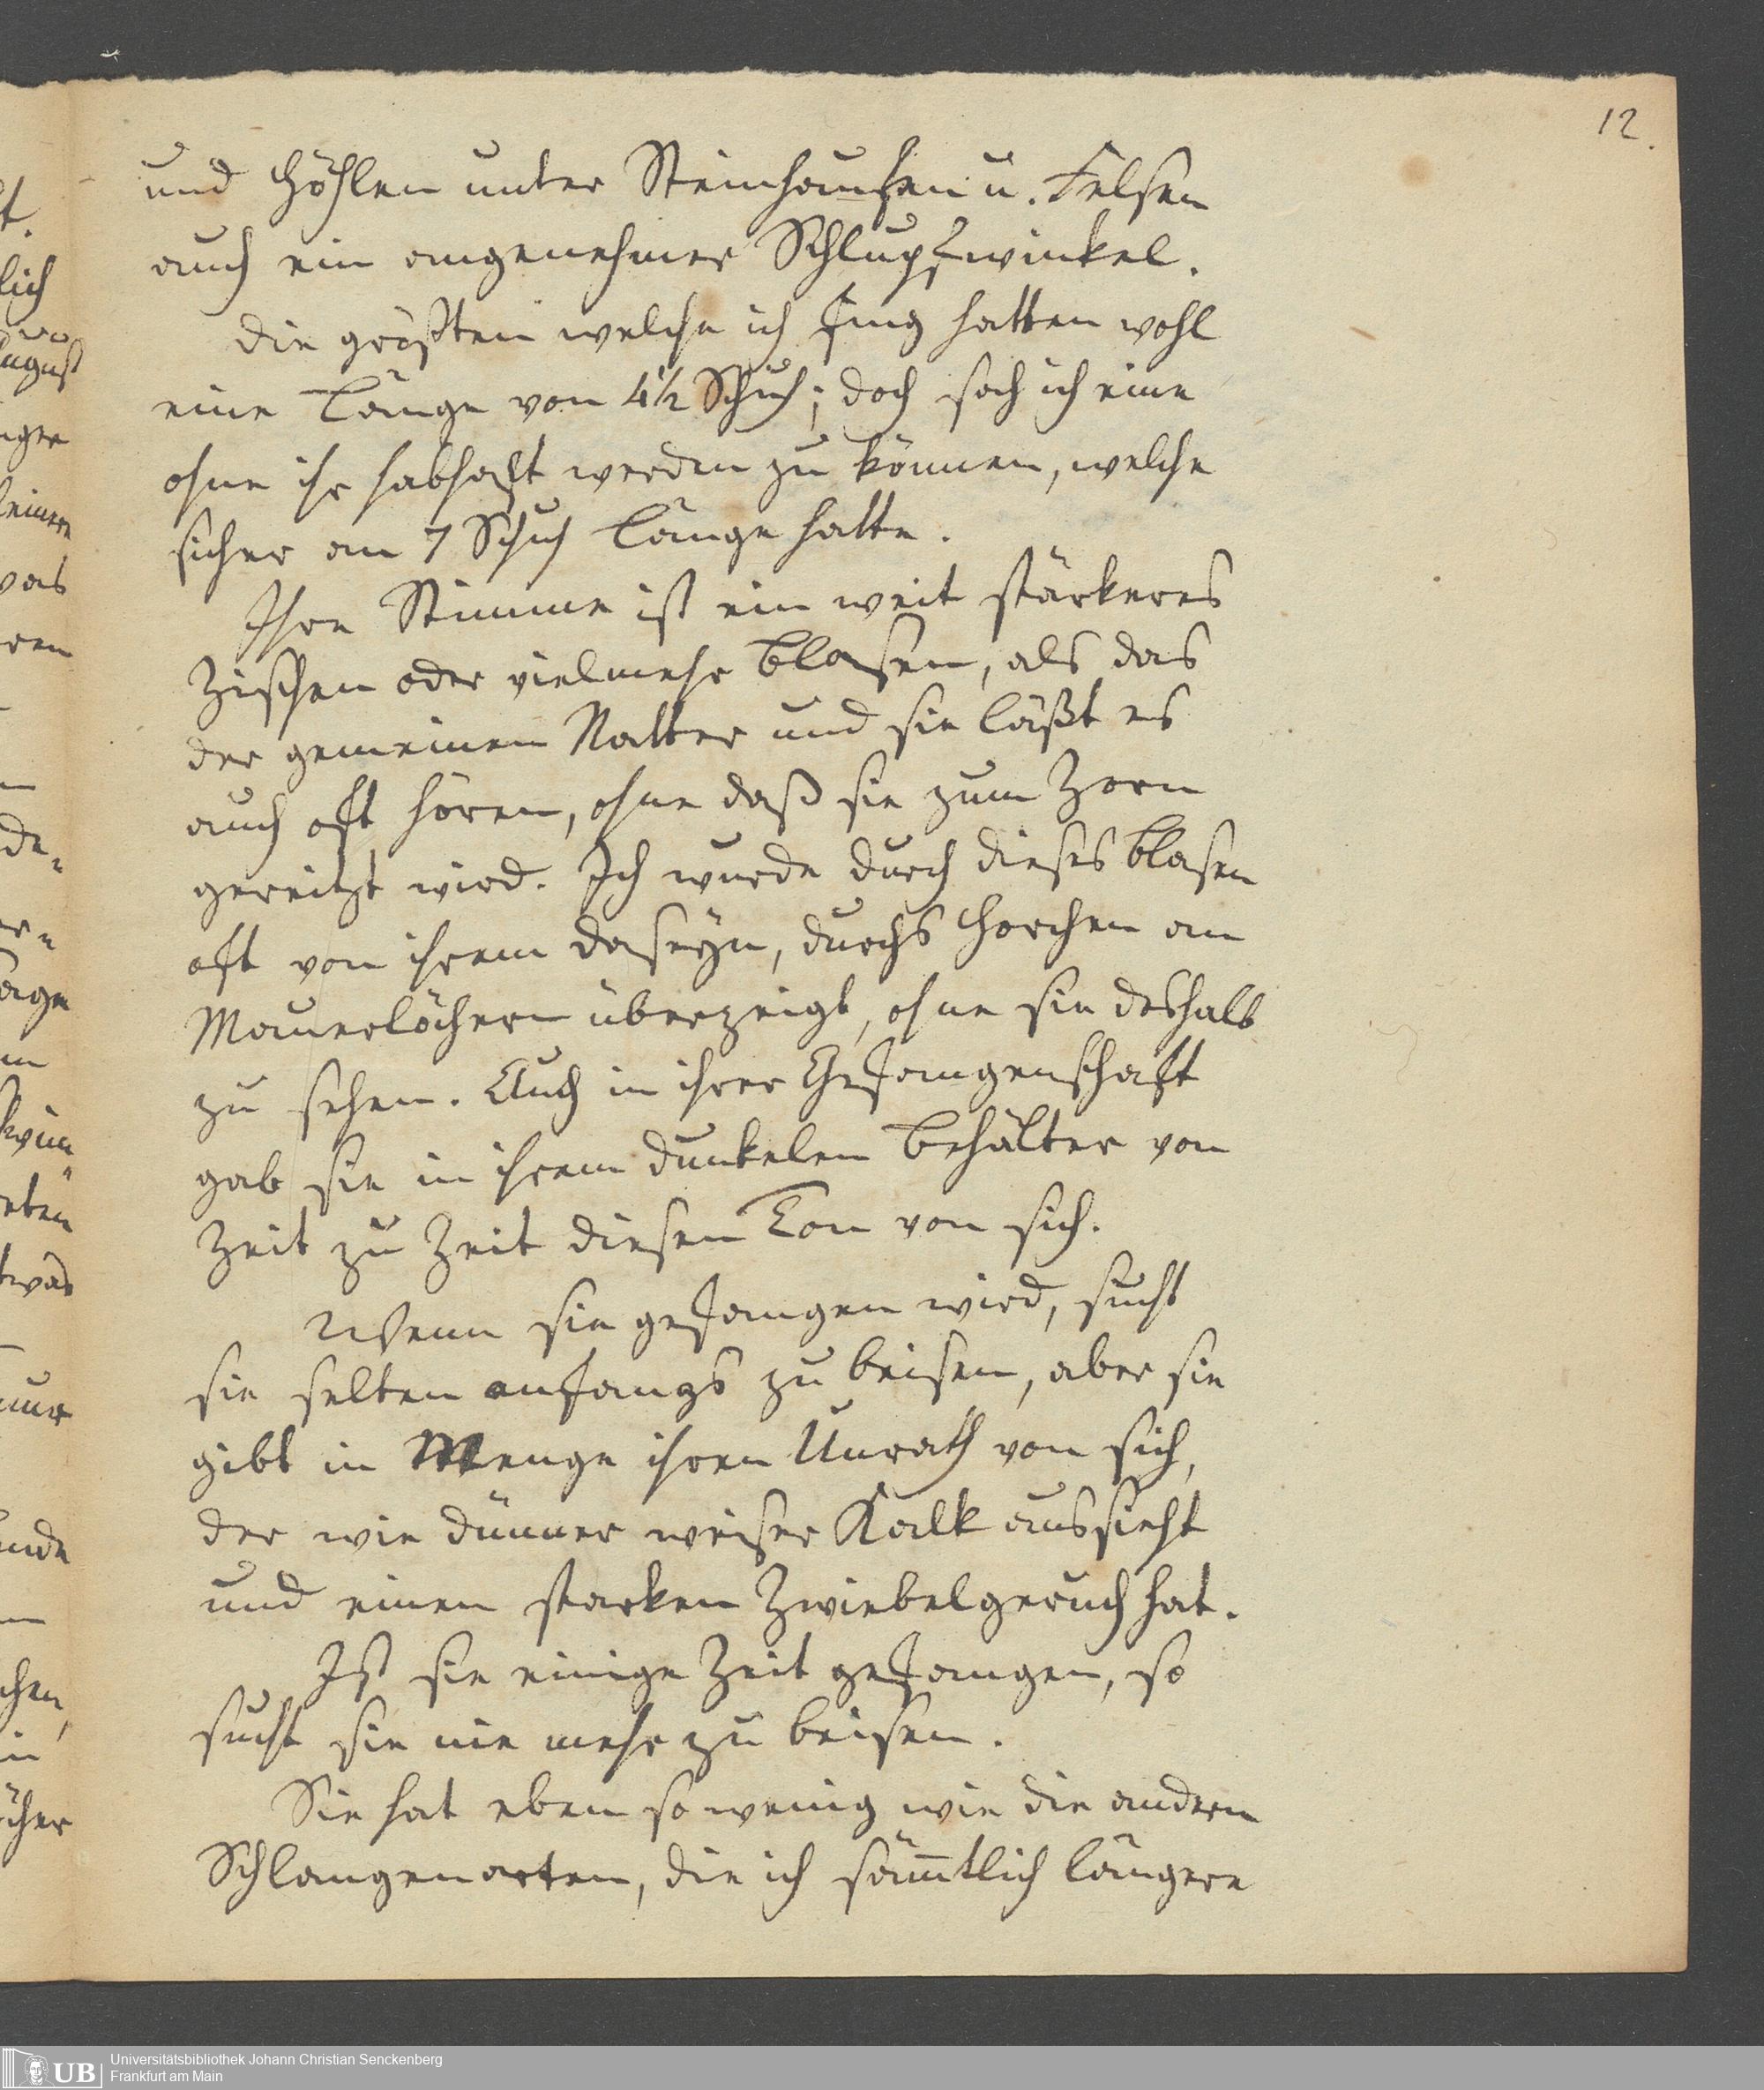 12.
und Höhlen unter Steinhaufen u. Felsen
auch ein angenehmer Schlupfwinkel.
Die größten welche ich fing hatten wohl
eine Länge von 4½ Schuh; doch sah ich eine
ohne ihr habhaft werden zu können, welche
sicher an 7 Schuh Länge hatte.
Ihre Stimme ist ein weit stärkeres
Zischen oder vielmehr Blasen, als das
der gemeinen Natter und sie läßt es
auch oft hören, ohne daß sie zum Zorn
gereitzt wird. Ich wurde durch dieses Blasen
oft von ihrem Daseyn, durchs Horchen an
Mauerlöchern überzeigt, ohne sie deshalb
zu sehen. Auch in ihrer Gefangenschaft
gab sie in ihrem dunkelen Behälter von
Zeit zu Zeit diesen Ton von sich.
Wenn sie gefangen wird, sucht
sie selten anfangs zu beisen, aber sie
gibt in Menge ihren Unrath von sich,
der wie dünner weiser Kalk aussieht
und einen starken Zwiebelgeruch hat.
Ist sie einige Zeit gefangen, so
sucht sie nie mehr zu beisen.
Sie hat eben so wenig wie die andern
Schlangenarten, die ich säm̅tlich längere
UB Universitätsbibliothek Johann Christian Senckenberg
Frankfurt am Main